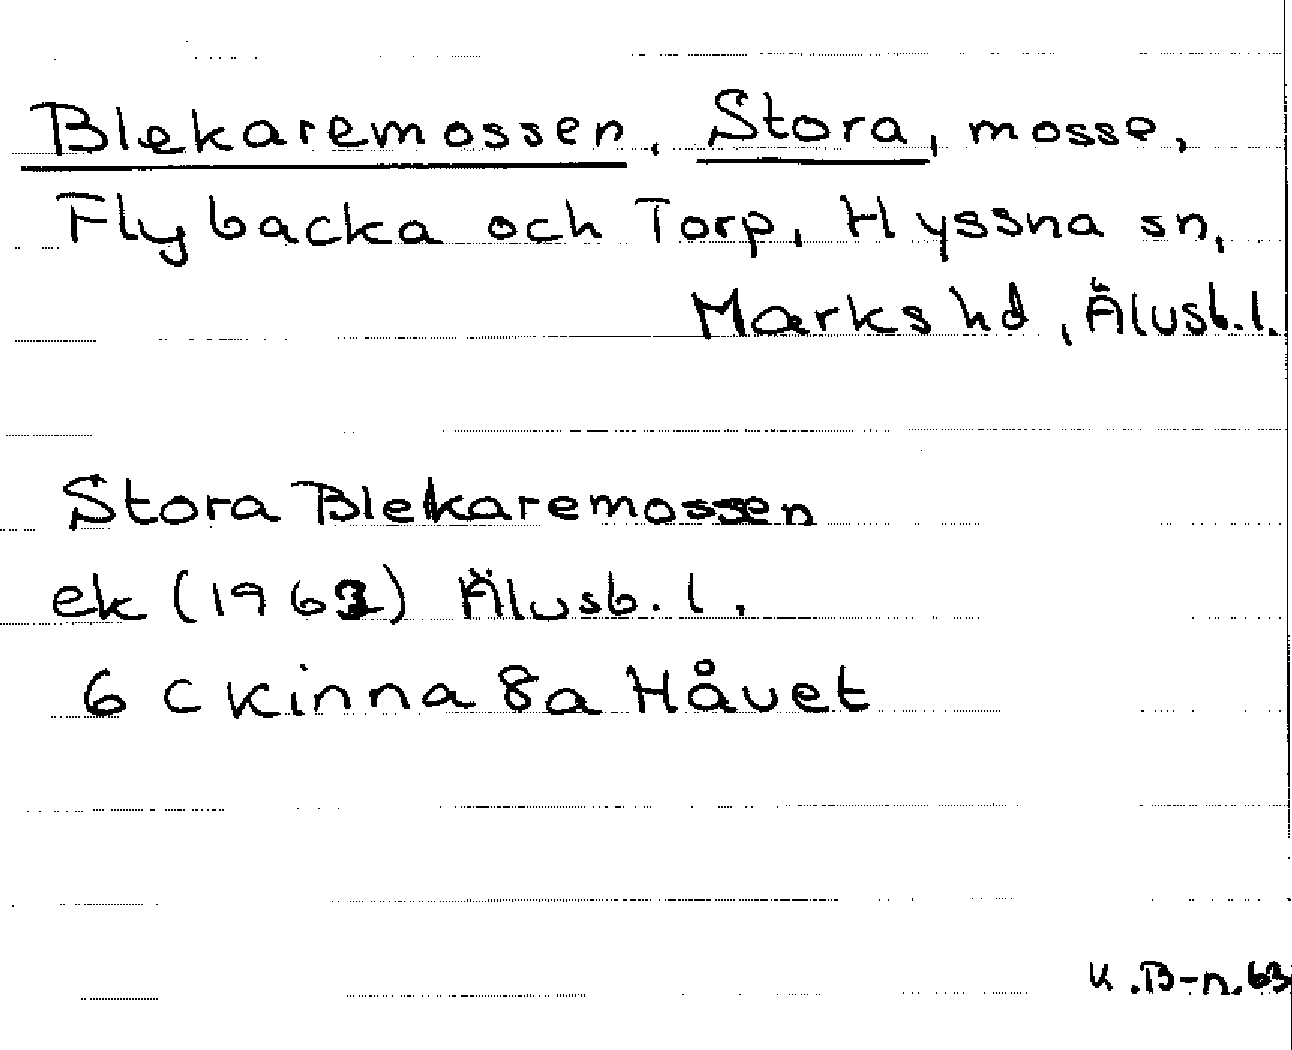 Blekaremossen, Stora, mosse,
Flybacka och Torp, Hyssna sn,
Marks hd, Älvsb. l.
Stora Blekaremossen
ek (1963) Älvsb. l.
6 C Kinna 8a Håvet
K.B-n. 63